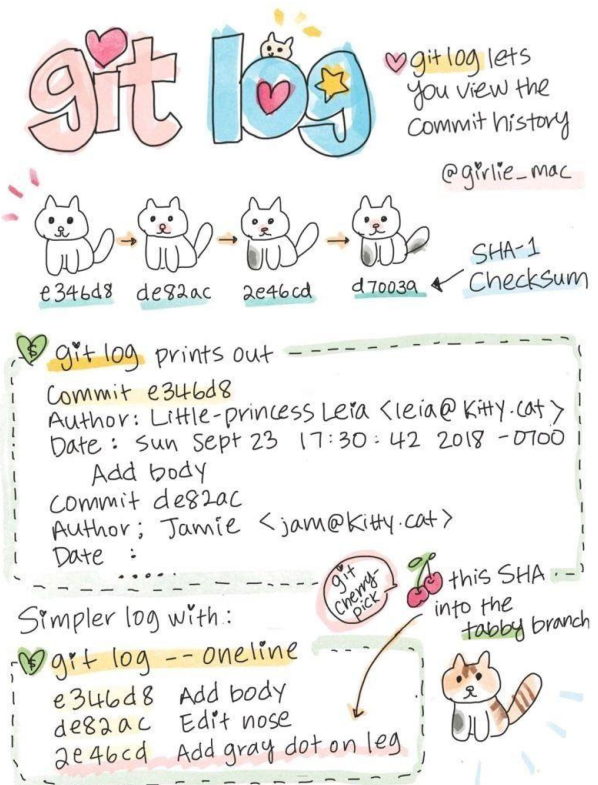 git log
git log lets
you view the
commit history
@girlie_mac
e346d8 → de82ac → 2e46cd → d7003a
SHA-1
Checksum
$ git log prints out
Commit e346d8
Author: Little-princess Leia <leia@kitty.cat>
Date : Sun Sept 23 17:30:42 2018 -0700
Add body
commit de82ac
Author; Jamie <jam@kitty.cat>
Date :
.....
git
cherry-
pick
this SHA
into the
tabby branch
Simpler log with:
$ git log --oneline
e346d8 Add body
de82ac Edit nose
2e46cd Add gray dot on leg